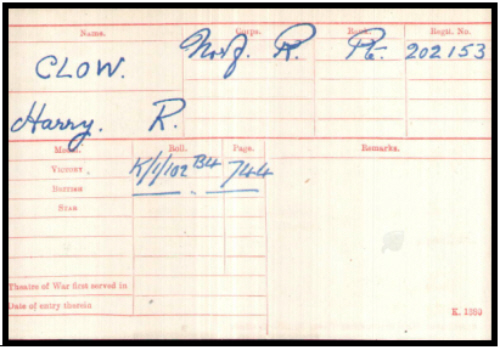 Name. Corps. Rank. Regtl. No.
CLOW. Norf. R. Pte. 202153
Harry. R.
Medal. Roll. Page. Remarks.
VICTORY K/1/102 B4 744
BRITISH
STAR
Theatre of War first served in
Date of entry therein
K. 1380